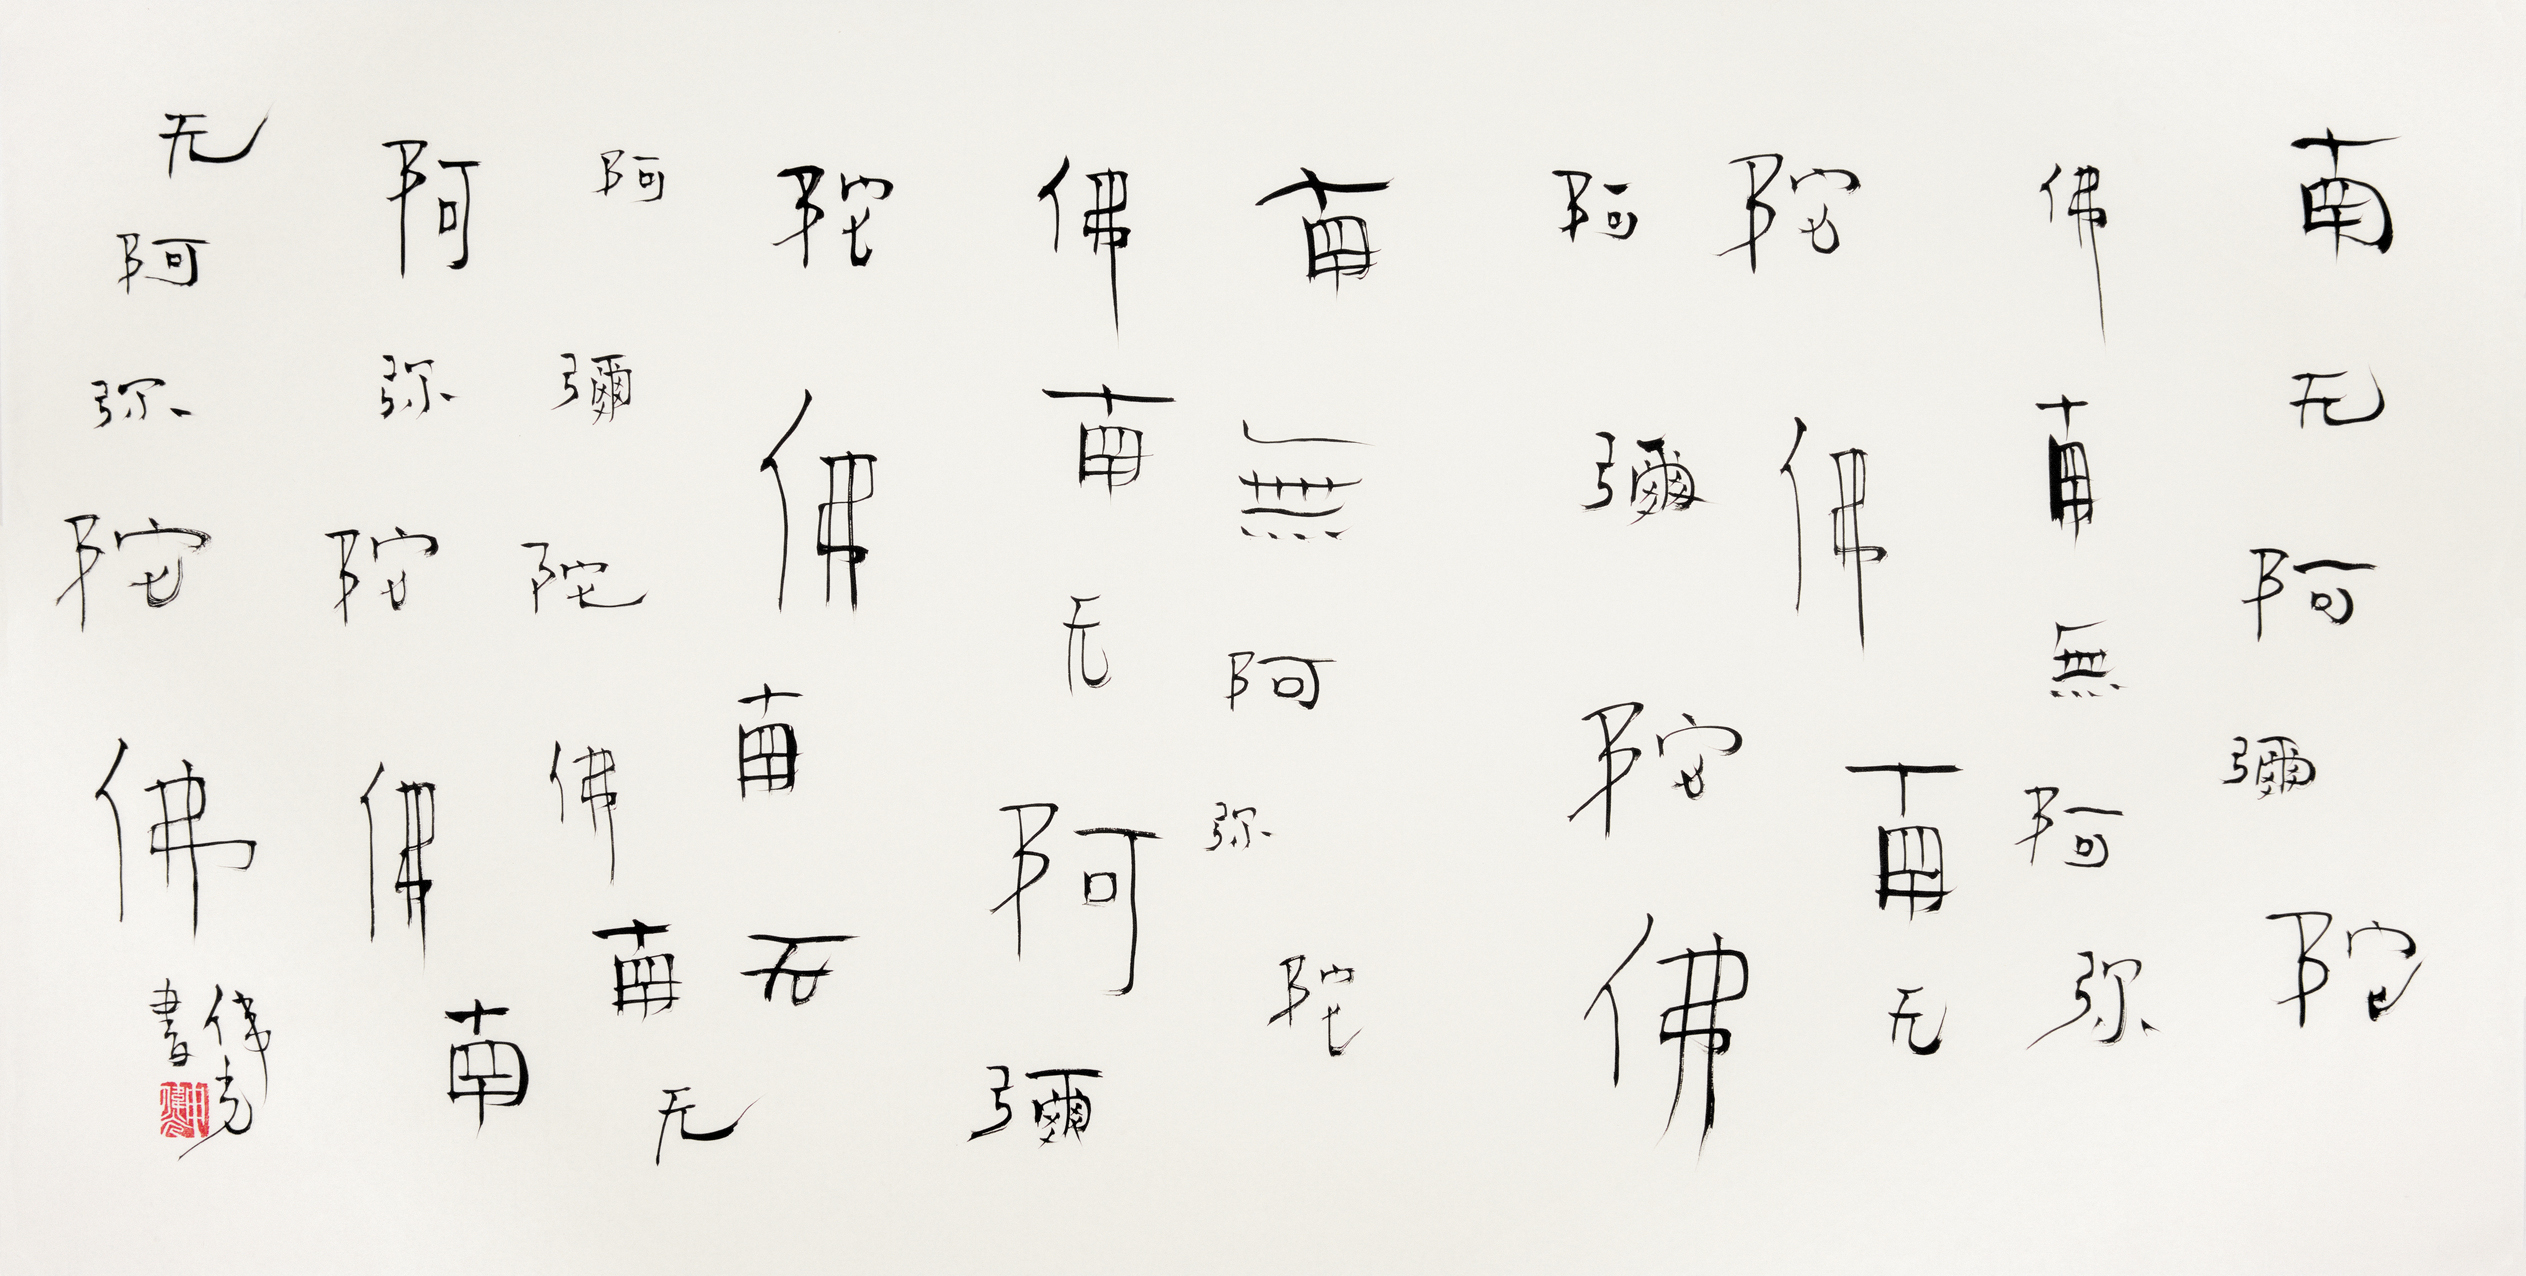 南无阿彌陀
佛南無阿弥
陀佛南无
阿彌陀佛
南無阿弥陀
佛南无阿彌
陀佛南无
阿彌陀佛南无
阿弥陀佛南
无阿弥陀佛
偉光
書